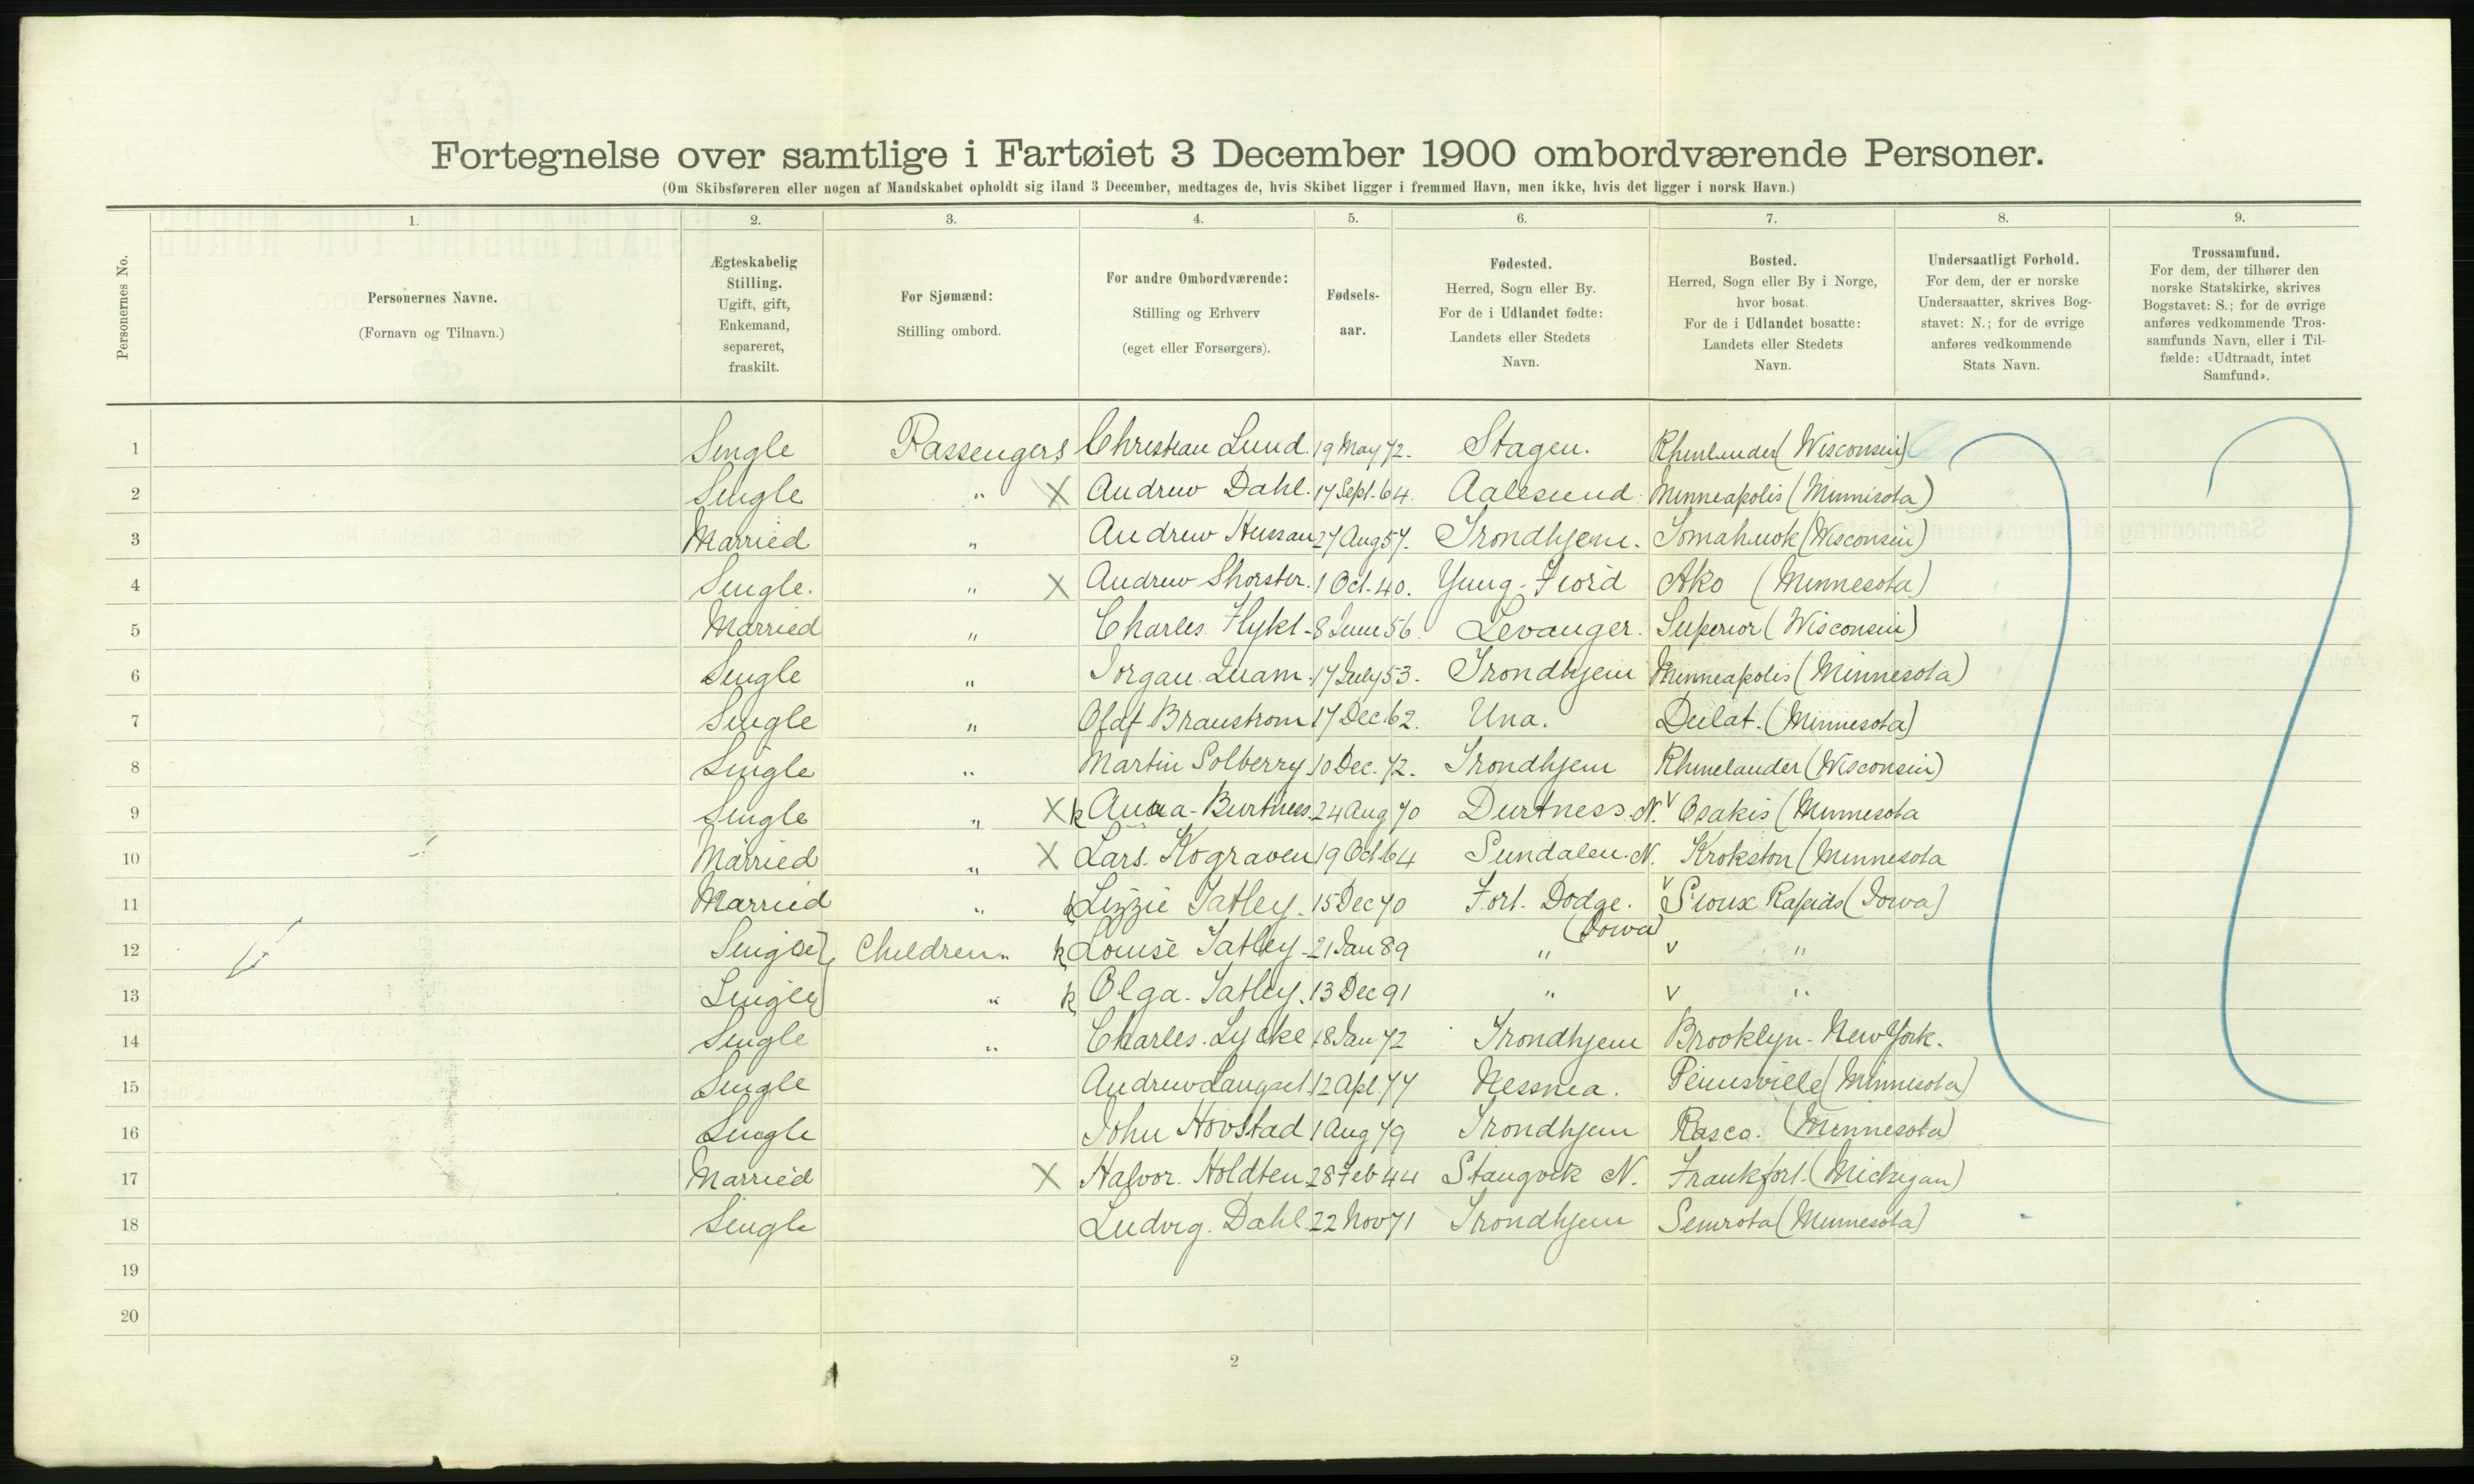 Fortegnelse over samtlige i Fartøiet 3 December 1900 ombordværende Personer.
(Om Skibsføreren eller nogen af Mandskabet opholdt sig iland 3 December, medtages de, hvis Skibet ligger i fremmed Havn, men ikke, hvis det ligger i norsk Havn.)
Personernes No.
1.
Personernes Navne.
(Fornavn og Tilnavn.)
2.
Ægteskabelig
Stilling.
Ugift, gift,
Enkemand,
separeret,
fraskilt.
3.
For Sjømænd:
Stilling ombord.
4.
For andre Ombordværende:
Stilling og Erhverv
(eget eller Forsørgers).
5.
Fødsels-
aar.
6.
Fødested.
Herred, Sogn eller By.
For de i Udlandet fødte:
Landets eller Stedets
Navn.
7.
Bosted.
Herred, Sogn eller By i Norge,
hvor bosat.
For de i Udlandet bosatte:
Landets eller Stedets
Navn.
8.
Undersaatligt Forhold.
For dem, der er norske
Undersaatter, skrives Bog-
stavet: N.; for de øvrige
anføres vedkommende
Stats Navn.
9.
Trossamfund.
For dem, der tilhører den
norske Statskirke, skrives
Bogstavet: S.; for de øvrige
anføres vedkommende Tros-
samfunds Navn, eller i Til-
fælde: «Udtraadt, intet
Samfund».
1 Single Passengers Christian Lund. 19 May 72. Stagen. (Wisconsin)
2 Single " X Andrew Dahl. 17 Sept. 64. Aalesund. Minneapolis (Minnisota)
3 Married " Andrew 27 Aug 57. Trondhjem. (Wisconsin)
4 Single. " X Andrew Shorster. 1 Oct. 40. Yung-Fiord Ako (Minnesota)
5 Married " Charles Flykt - 8 June 56. Levanger. Superior (Wisconsin)
6 Single " Jorgan 17 July 53. Trondhjem Minneapolis (Minnesota)
7 Single " Olaf Braustrom 17 Dec. 62. Una. Dulat. (Minnesota)
8 Single " Martin Solberry 10 Dec. 72. Trondhjem Rhinelander (Wisconsin)
9 Single " X k Anna - Burtness. 24 Aug 70 Durtness. N. v Osakis (Minnesota
10 Married " X Lars. Kograven 19 Oct 64 Sundalen. N. Krokston (Minnesota
11 Married " k Lizzie Tatley. 15 Dec 70 Fort. Dodge. v Sioux Rapids (Iowa)
(Iowa)
12 Single Children " k Louise Tatley - 21 Jan 89 " v "
13 Single " k Olga - Tatley. 13 Dec 91 " v "
14 Single " Charles. Lycke 18 Jan 72 Trondhjem Brooklyn - New York.
15 Single Andrew Langset 12 Apl. 77 Nessnea. (Minnesota)
16 Single John Hovstad 1 Aug 79 Trondhjem Rasca. (Minnesota)
17 Married X Halvor. Holdten 28 Feb 44 Stangvik N. Frankfort. (Michigan)
18 Single Ludvig. Dahl 22 Nov 71 Trondhjem (Minnesota)
19
20
2